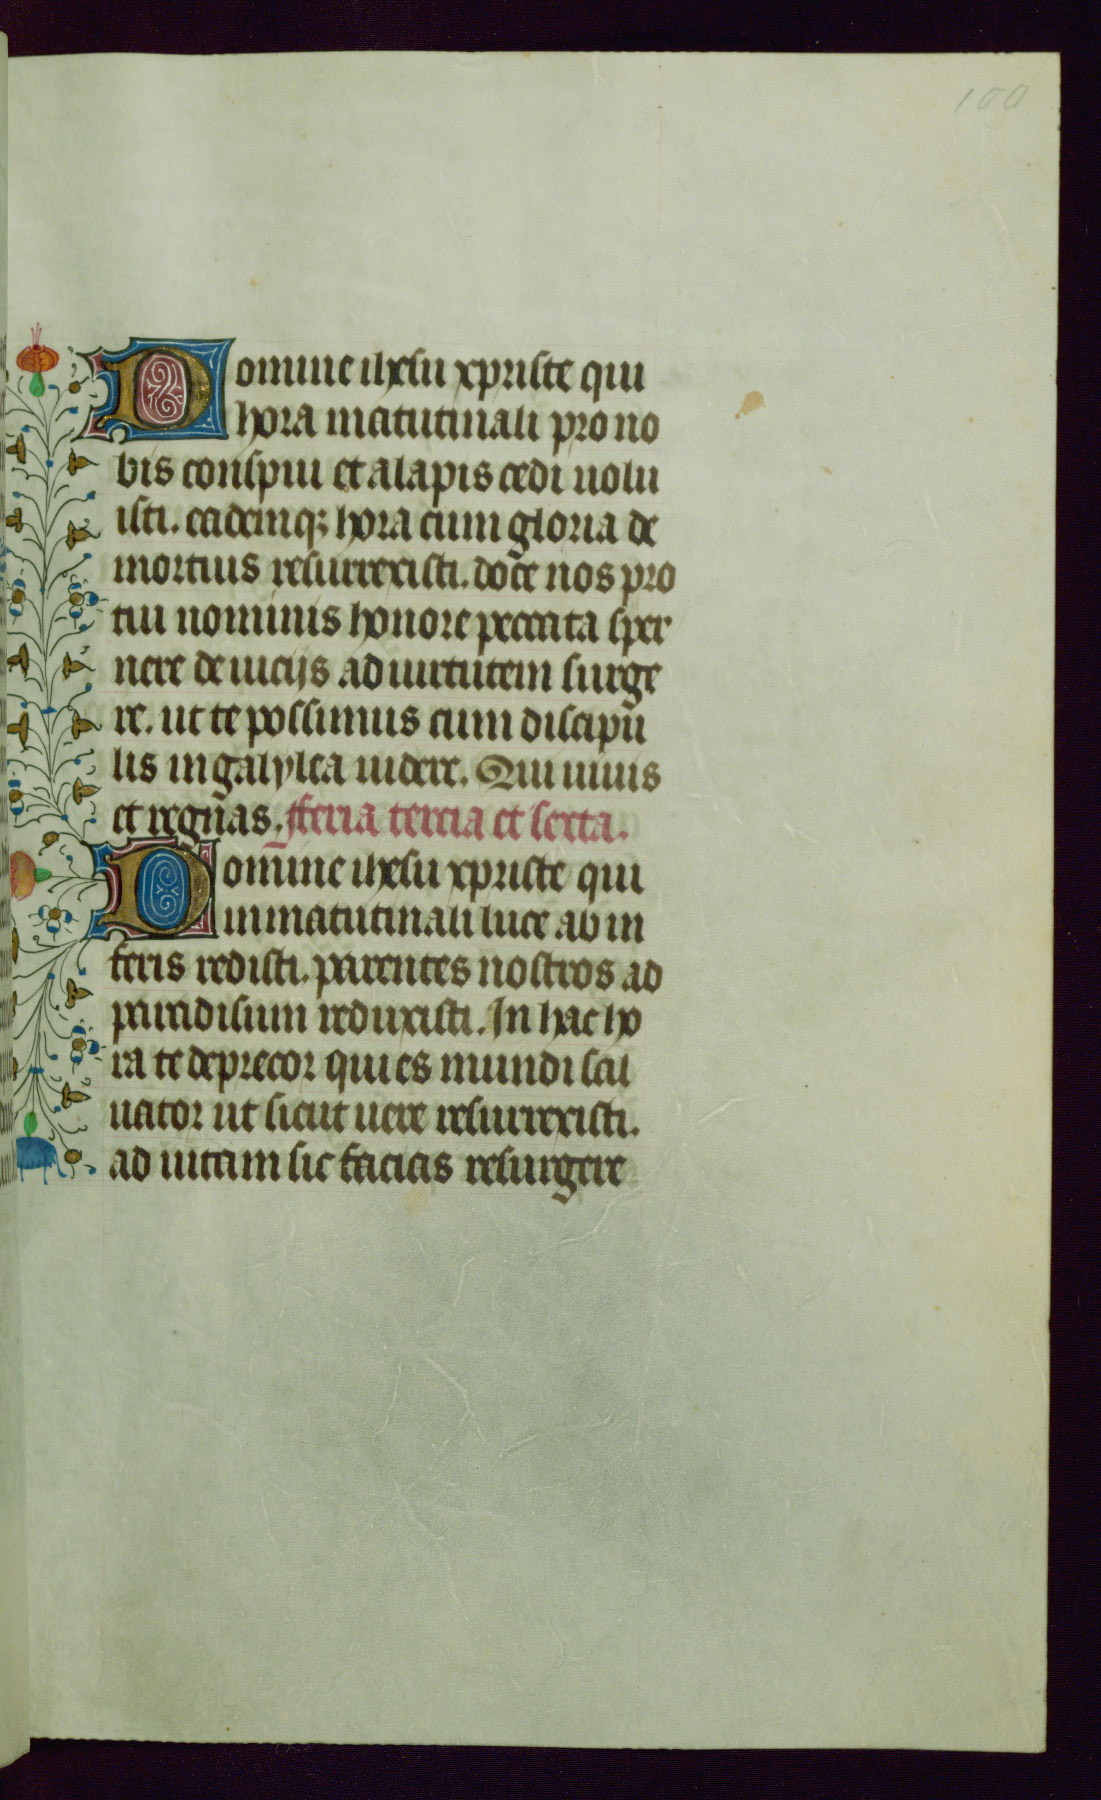 100
Domine ihesu xpriste qui
hora matutinali pro no
bis conspui et alapis cedi uolu
isti. eademq; hora cum gloria de
mortuis resurrexisti. doce nos pro
tui nominis honore peccata sper
nere de uicijs ad uirtutem surge
re. ut te possimus cum discipu
lis in galylea uidere. Qui uiuis
et regnas. fferia tercia et sexta.
Domine ihesu xpriste qui
in matutinali luce ab in
feris redisti. parentes nostros ad
paradisum reduxisti. In hac ho
ra te deprecor qui es mundi sal
uator ut sicut uere resurrexisti.
ad uitam sic facias resurgere